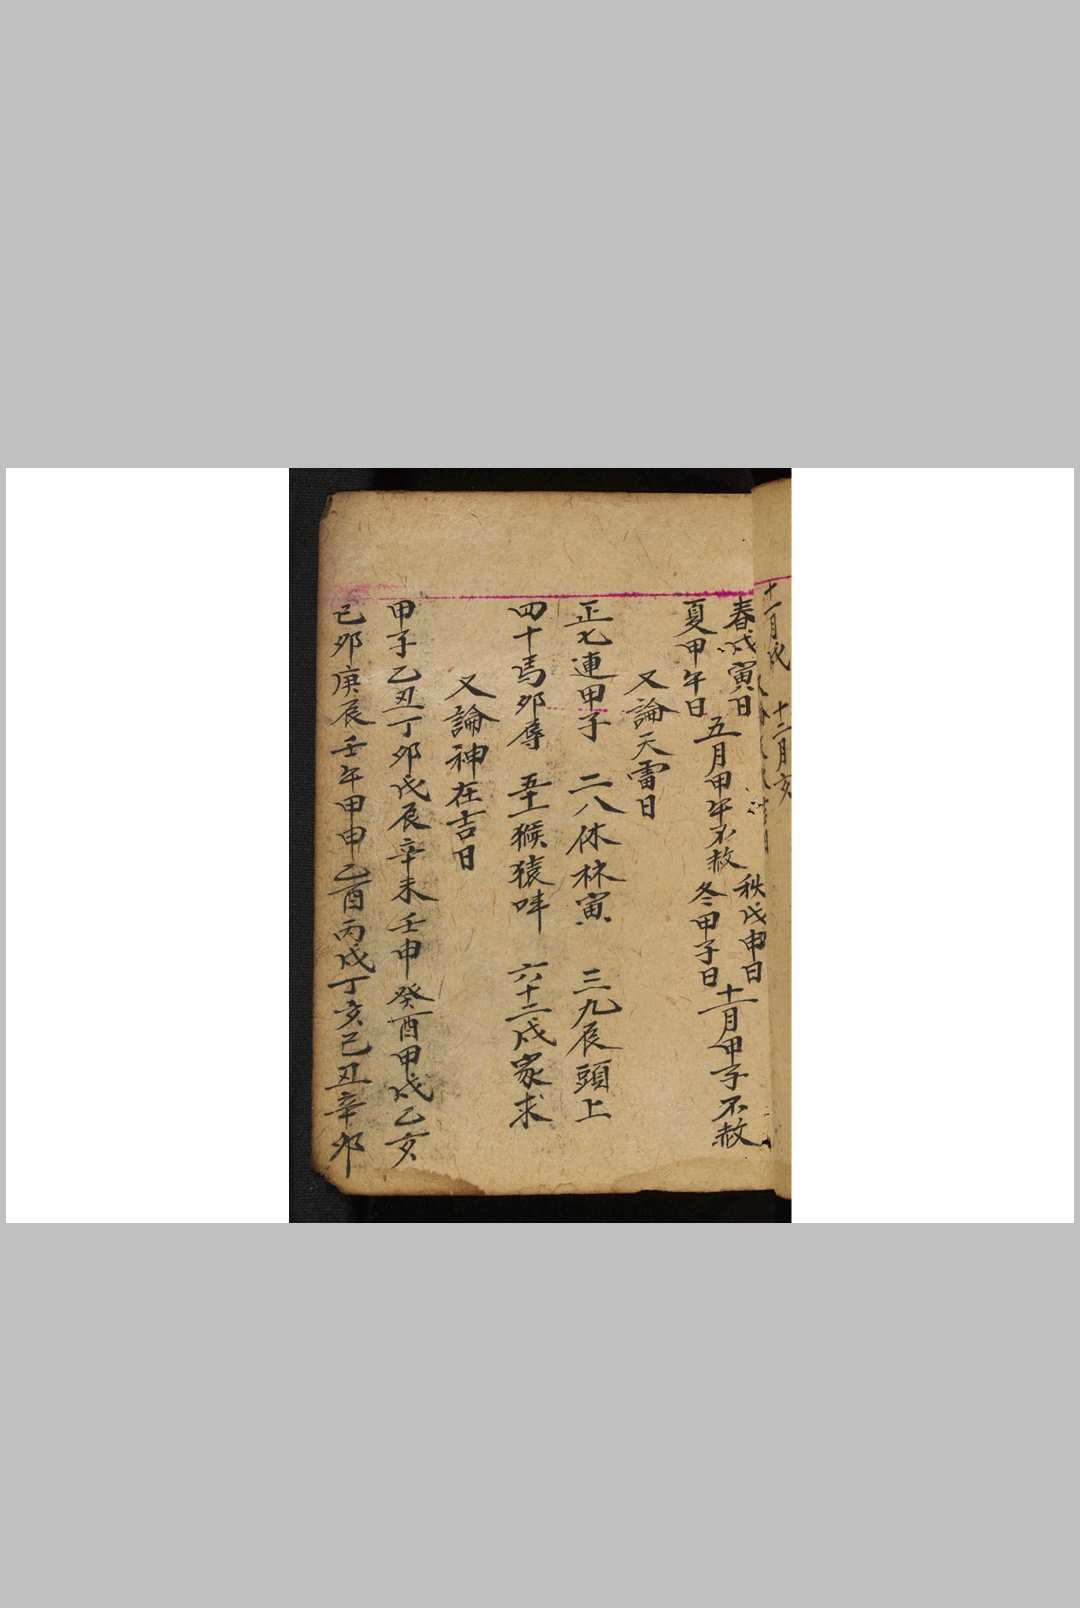 十一月戌　十二月亥
春戊寅日　秋戊申日
夏甲午日　五月甲午不赦　冬甲子日　十一月甲子不赦
又論天雷日
正七連甲子　二八休林寅　三九辰頭上
四十馬卯辱　五十一猴猿吽　六十二戌家求
又論神在吉日
甲子乙丑丁卯戊辰辛未壬申癸酉甲戌乙亥
己卯庚辰壬午甲申乙酉丙戌丁亥己丑辛卯